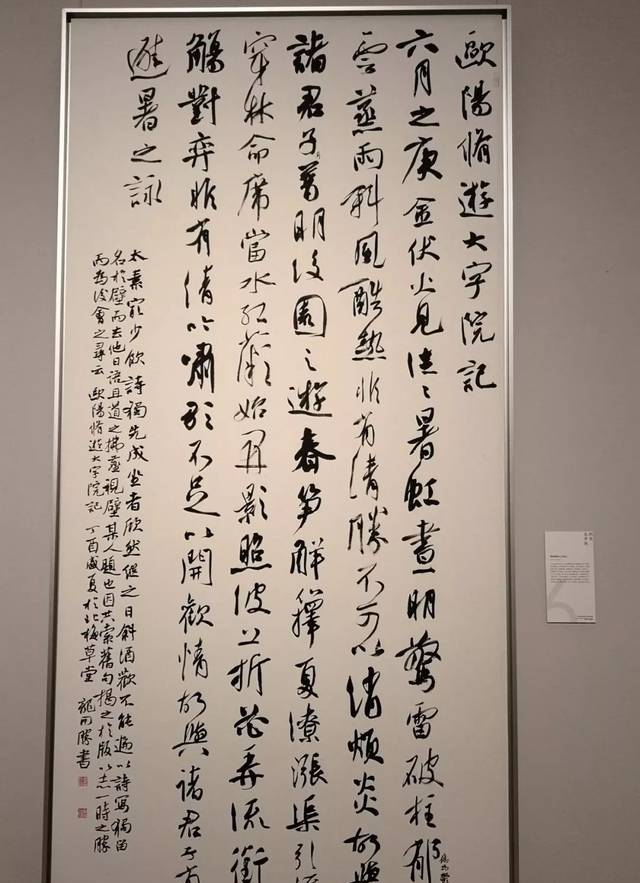 歐陽脩遊大字院記
六月之庚金伏火見往往暑虹晝明驚雷破柱郁
雲蒸雨斜風酷熱非有清勝不可以消煩炎故與
諸君子普明後園之遊春筍解籜夏潦漲渠引流
穿林命席當水紅薇始開影照波上折花弄流銜
觴對弈非有清吟嘯歌不足以開歡情故與諸君子有
避暑之詠
太素最少飲詩獨先成坐者欣然繼之日斜酒歡不能遍以詩寫獨留
名於壁而去他日語且道之拂塵視壁某人題也因共索舊句揭之於版以志一時之勝
而為後會之尋云 歐陽脩遊大字院記 丁酉盛夏於北梅草堂 龍開勝書